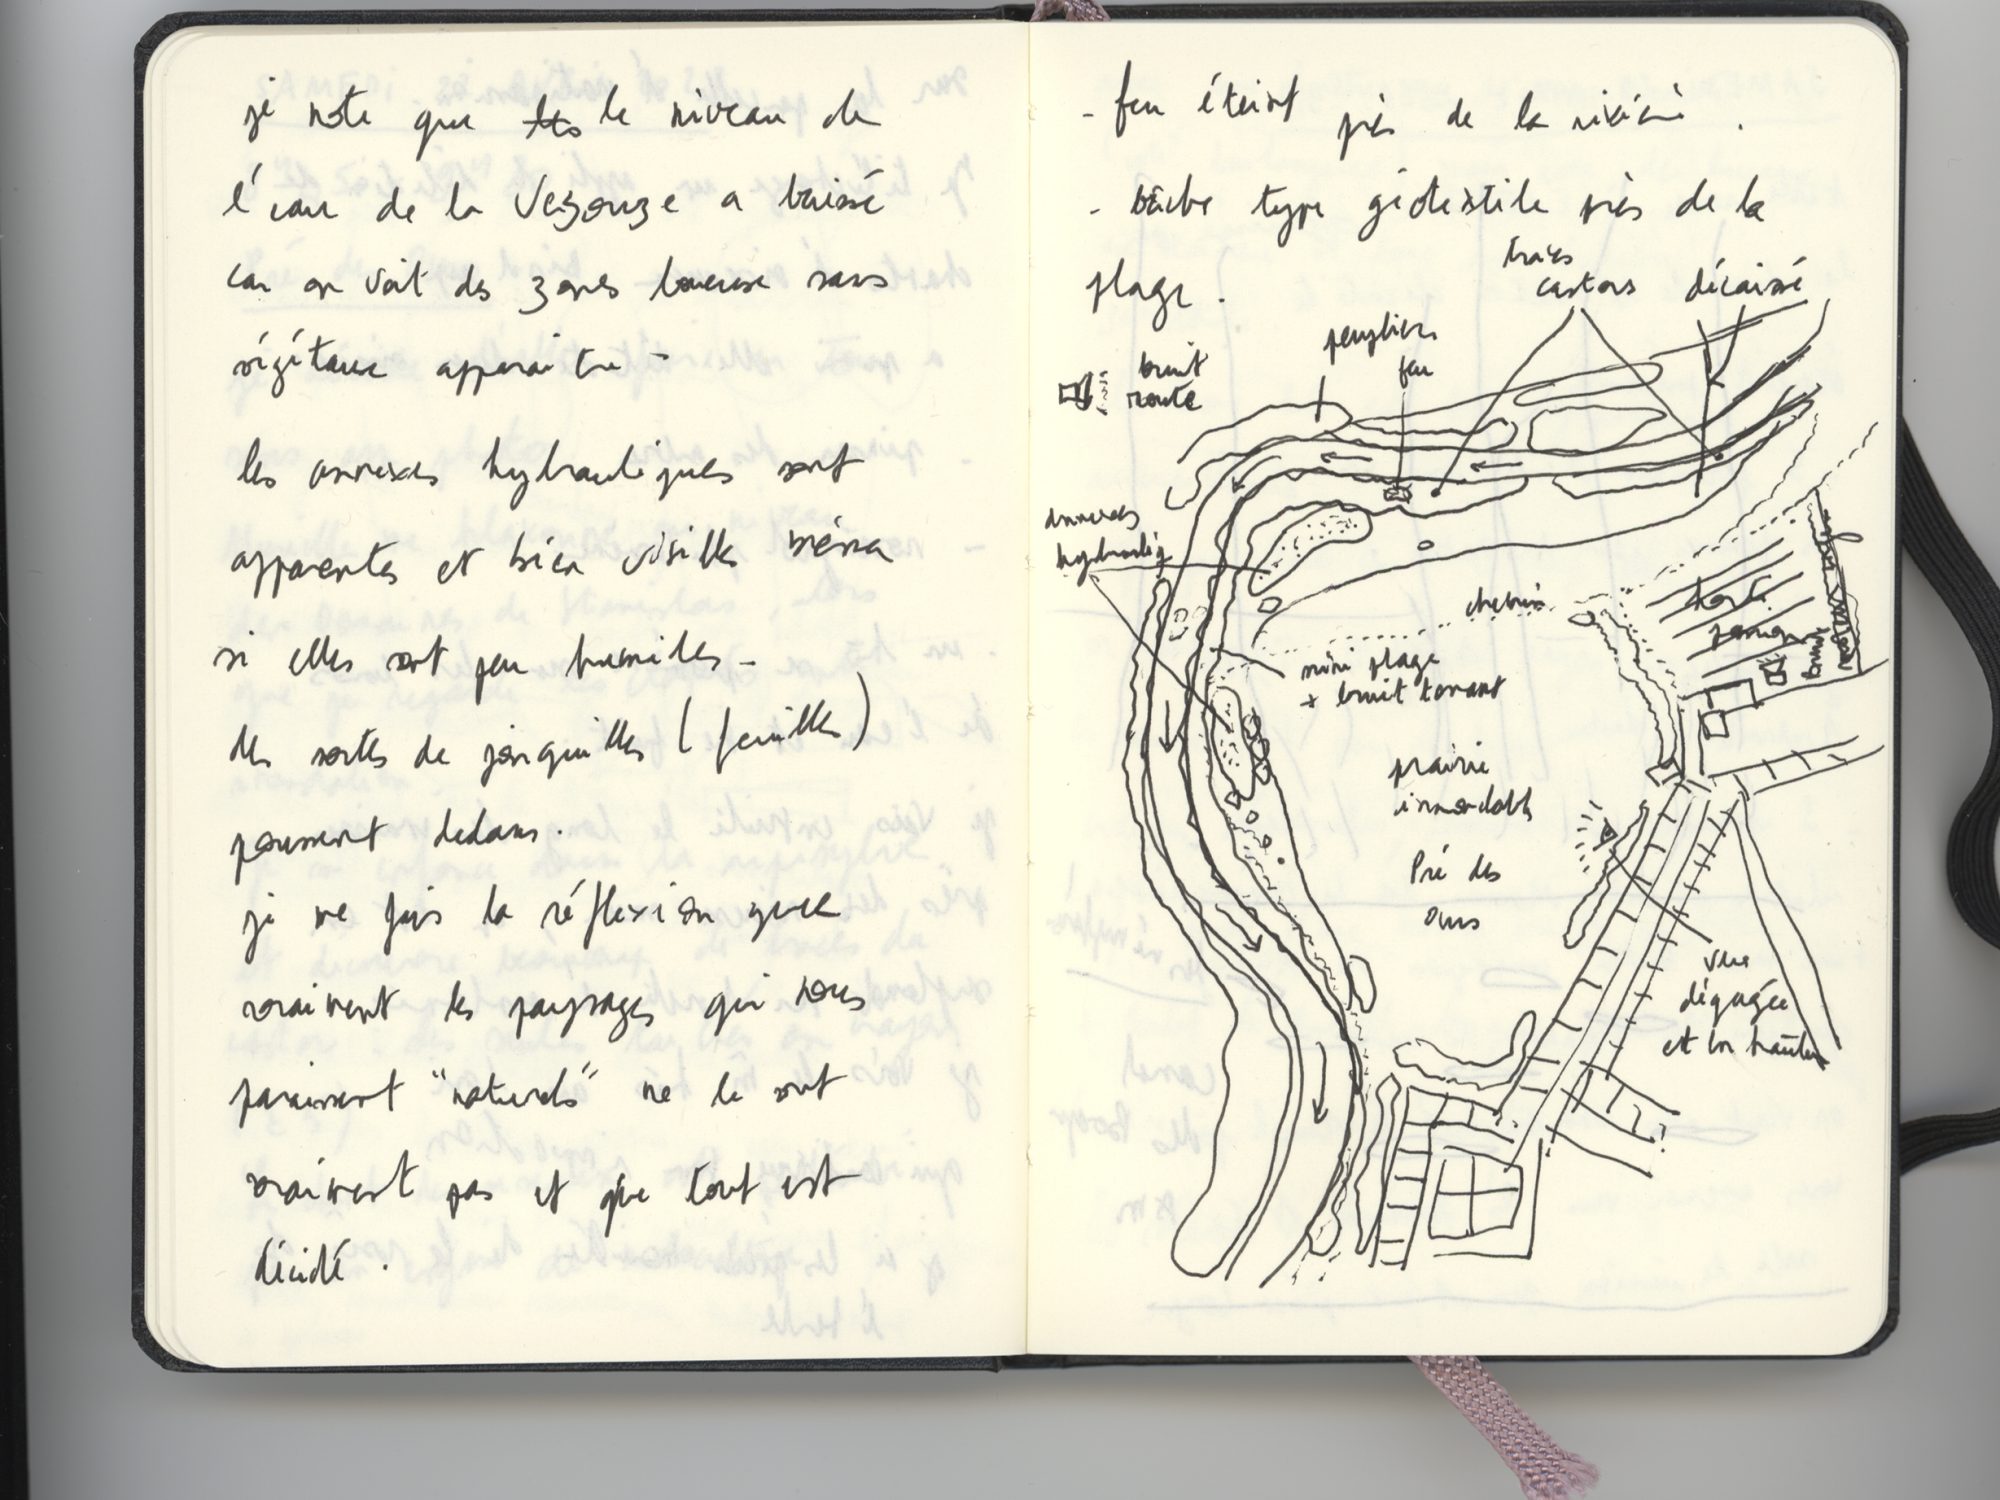 je note que les le niveau de
l'eau de la Vezouze a baissé
car on voit des zones boueuse sans
végétaux apparaitre
les annexes hydrauliques sont
apparentes et bien visibles même
si elles sont peu humides -
des sortes de jonquilles (feuilles)
poussent dedans.
je me fais la réflexion que
vraiment les paysages qui nous
paraissent "naturels" ne le sont
vraiment pas et que tout est
décidé.
- feu éteint près de la rivière.
- bâche type géotextile près de la
plage.
traces
castors
décaissé
peupliers
feu
bruit
route
annexes
hydrauliq
chemin
mini plage
+ bruit torrent
prairie
inondable
Pré des
ours
bruit
vue
dégagée
et en hauteur